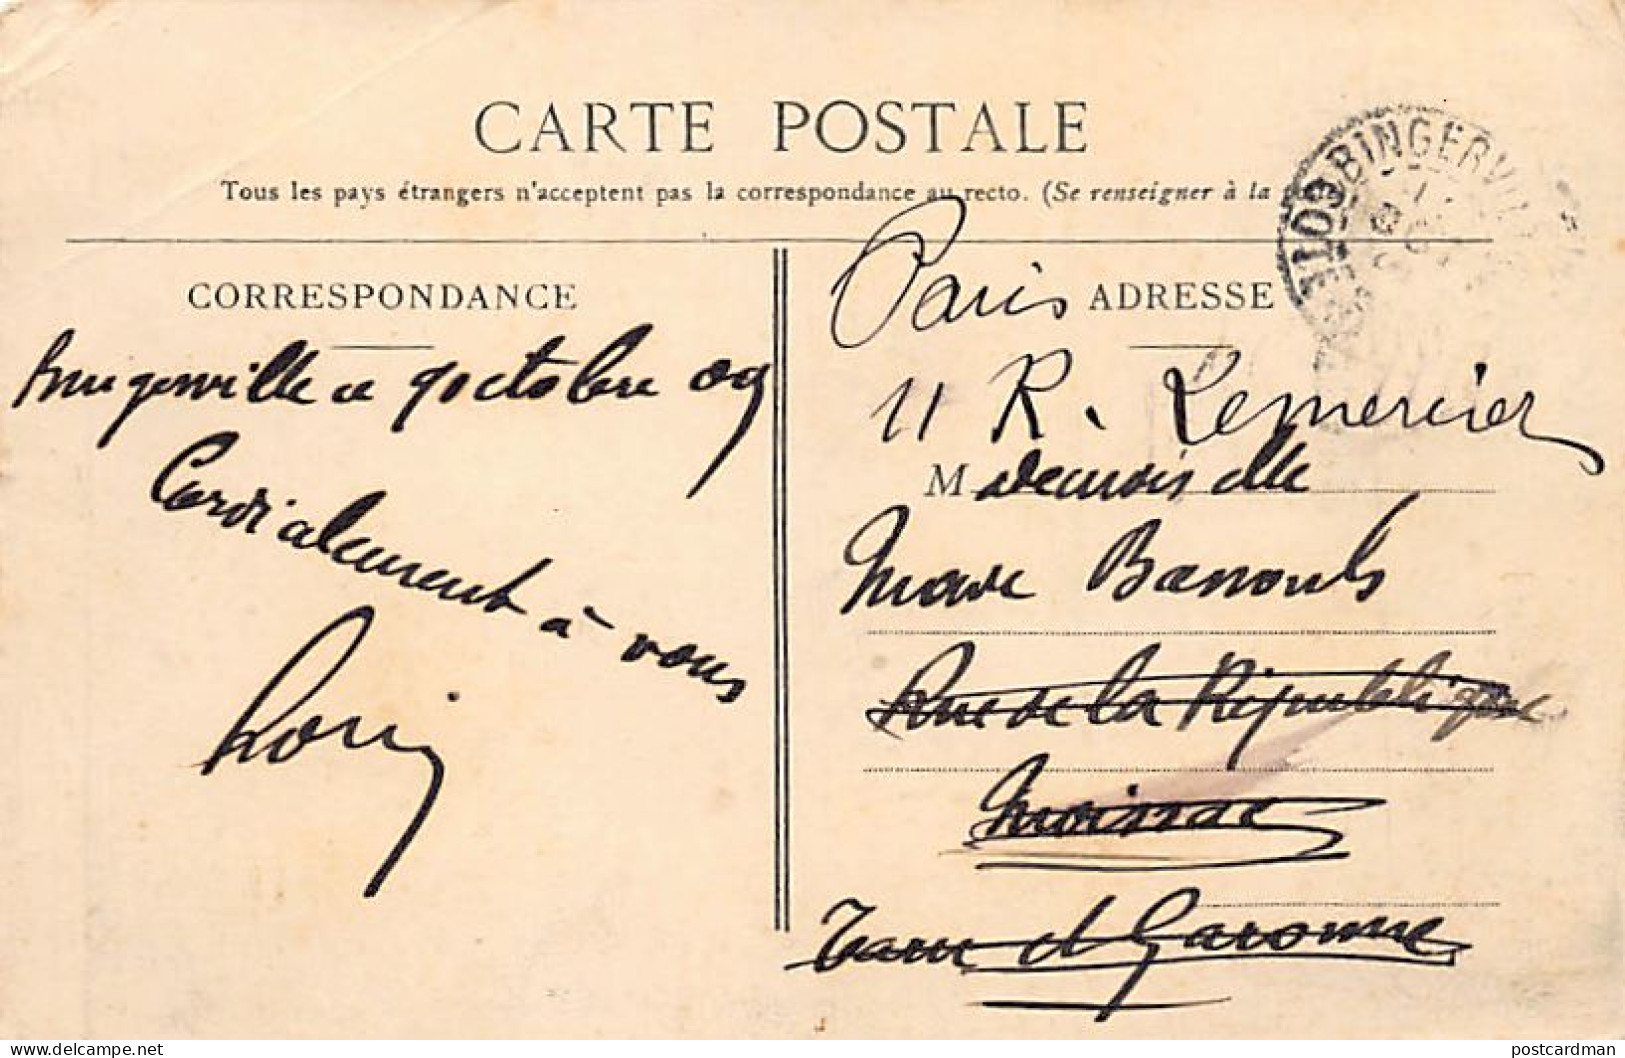 CARTE POSTALE
Tous les pays étrangers n'acceptent pas la correspondance au recto. (Se renseigner à la
BINGERVILLE
COTE
CORRESPONDANCE
Bingerville le 9 octobre 09
Cordialement à vous
ADRESSE
Paris
11 R. Lemercier
Mademoiselle
Marie
Rue de la République
Moissac
Tarn et Garonne
postcardman